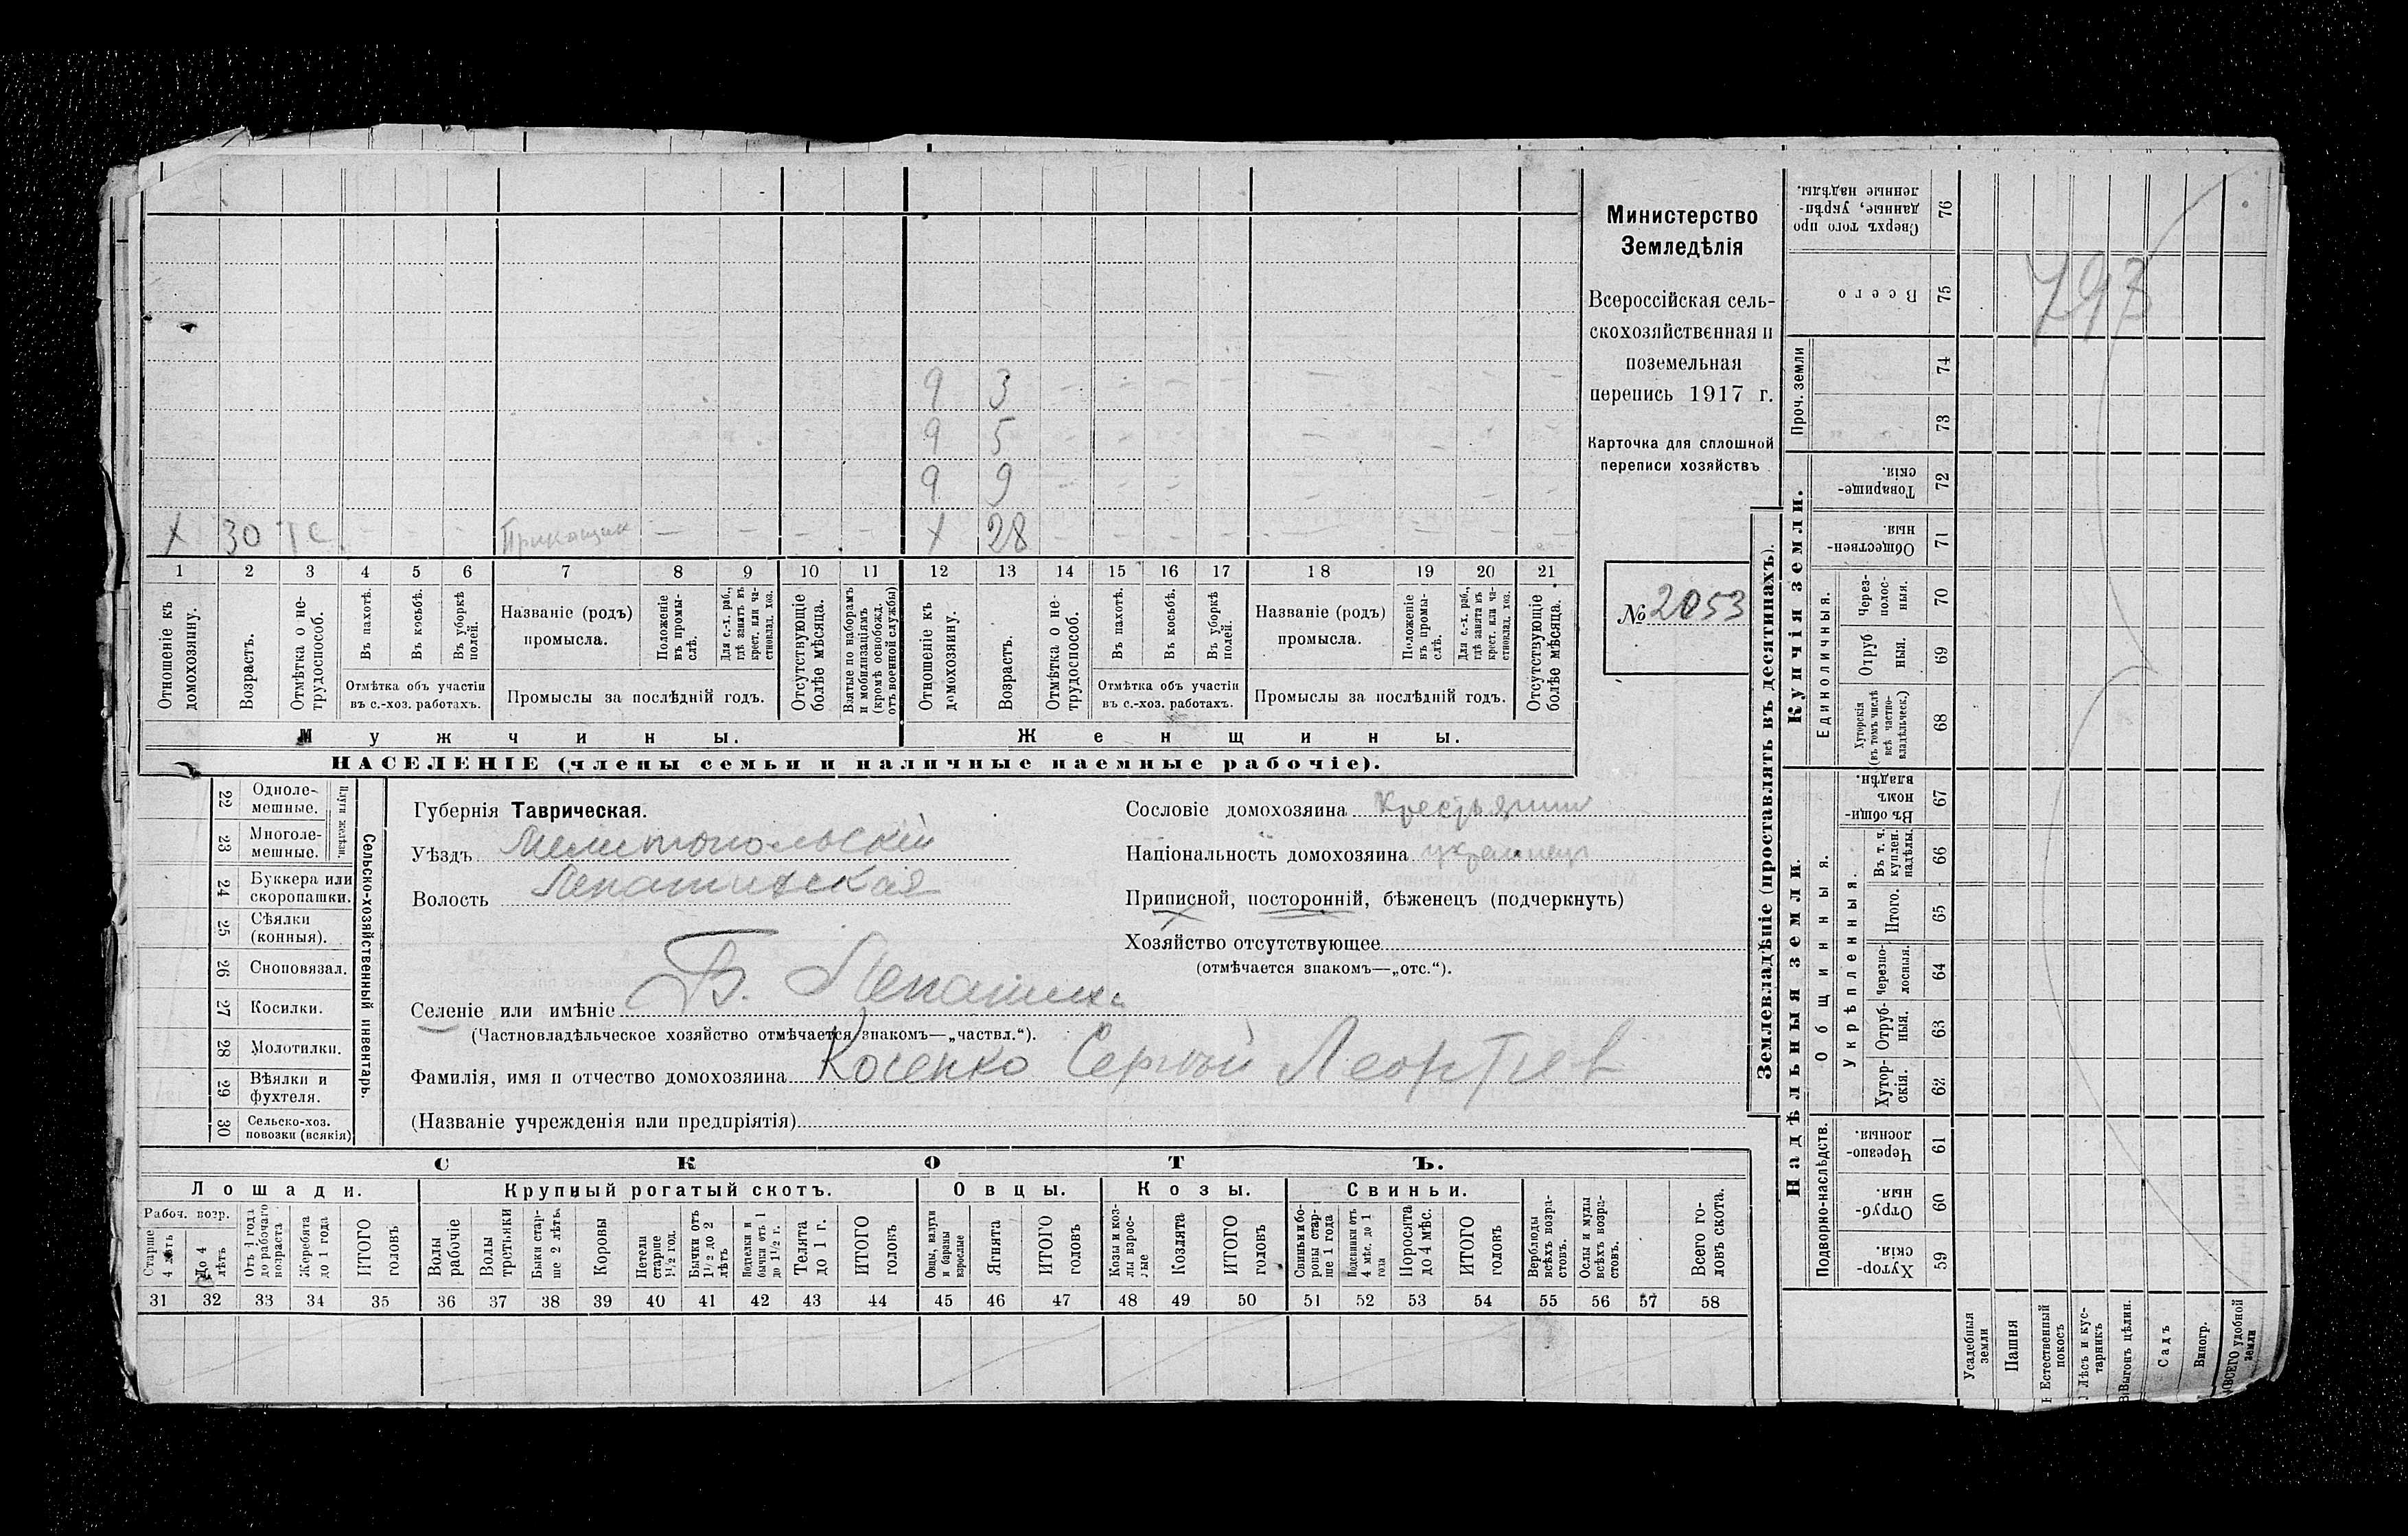 9 3 – – – – – – – –
9 5 – – – – – – – –
9 9 – – – – – – – –
х 30 – – – Прикащик – – – – х 28 – – – – – – – –
1 2 3 4 5 6 7 8 9 10 11 12 13 14 15 16 17 18 19 20 21
Отношеніе къ домохозяину.
Возрастъ.
Отмѣтка о не-трудоспособ.
Въ пахотѣ.
Въ косьбѣ.
Въ уборкѣ полей.
Отмѣтка объ участіи въ с.-хоз. работахъ.
Названіе (родъ) промысла.
Положеніе въ промы-слѣ.
Для с.-х. раб., гдѣ занятъ въ крест. или ча-стновлад. хоз.
Промыслы за послѣдній годъ.
Отсутствующіе болѣе мѣсяца.
Взятые по наборамъ и мобилизаціямъ (кромѣ освобожд. отъ военной службы)
Отношеніе къ домохозяину.
Возрастъ.
Отмѣтка о не-трудоспособ.
Въ пахотѣ.
Въ косьбѣ.
Въ уборкѣ полей.
Отмѣтка объ участіи въ с.-хоз. работахъ.
Названіе (родъ) промысла.
Положеніе въ промы-слѣ.
Для с.-х. раб., гдѣ занята въ крест. или ча-стновлад. хоз.
Промыслы за послѣдній годъ.
Отсутствующіе болѣе мѣсяца.
Мужчины.
Женщины.
НАСЕЛЕНІЕ (члены семьи и наличные наемные рабочіе).
Министерство
Земледѣлія
Всероссійская сель-
скохозяйственная и
поземельная
перепись 1917 г.
Карточка для сплошной
переписи хозяйствъ
№ 2053
22 Одноле-мешные.
23 Многоле-мешные.
Плуги желѣзн.
24 Буккера или скоропашки.
25 Сѣялки (конныя).
26 Сноповязал.
27 Косилки.
28 Молотилки.
29 Вѣялки и фухтеля.
30 Сельско-хоз. повозки (всякія)
Сельско-хозяйственный инвентарь.
Губернія Таврическая.
Уѣздъ Мелитопольскій
Волость Лепатихская
Селеніе или имѣніе Б. Лепатиха
(Частновладѣльческое хозяйство отмѣчается знакомъ—„частвл.“).
Фамилія, имя и отчество домохозяина Косенко Сергѣй Леонтіев
(Названіе учрежденія или предпріятія)
Сословіе домохозяина Крестьянин
Національность домохозяина украинец
Приписной, посторонній, бѣженецъ (подчеркнуть)
Хозяйство отсутствующее
(отмѣчается знакомъ—„отс.“).
СКОТЪ.
Лошади.
Крупный рогатый скотъ.
Овцы.
Козы.
Свиньи.
Рабоч. возр.
Старше 4 лѣтъ
До 4 лѣтъ
Отъ 1 года до рабочаго возраста
Жеребята до 1 года
ИТОГО головъ
Волы рабочіе
Волы третьяки
Быки стар-ше 2 лѣтъ
Коровы
Нетели старше 1½ год.
Бычки отъ 1½ до 2 лѣтъ
Подтелки и бычки отъ 1 до 1½ г.
Телята до 1 г.
ИТОГО головъ
Овцы, валухи и бараны взрослые
Ягнята
ИТОГО головъ
Козы и коз-лы взрос-лые
Козлята
ИТОГО головъ
Свиньи и бо-ровы стар-ше 1 года
Подсвинки отъ 4 мѣс. до 1 года
Поросята до 4 мѣс.
ИТОГО головъ
Верблюды всѣхъ возра-стовъ.
Ослы и мулы всѣхъ возра-стовъ.
Всего го-ловъ скота.
31 32 33 34 35 36 37 38 39 40 41 42 43 44 45 46 47 48 49 50 51 52 53 54 55 56 57 58
Землевладѣніе (проставлять въ десятинахъ).
Купчія земли.
Надѣльныя земли.
Проч. земли
Сверхъ того про-данные, укрѣп-ленные надѣлы. 76
Всего 75
74
73
Товарище-скія. 72
Обществен-ныя. 71
Единоличныя.
Через-полос-ныя. 70
Отруб-ныя. 69
Хуторскія (въ томъ числѣ всѣ частно-владѣльческ.) 68
Общинныя.
Въ общи-номъ владѣн. 67
Укрѣпленныя.
Въ т. ч. куплен. надѣлы. 66
Итого. 65
Черезпо-лосныя. 64
Отруб-ныя. 63
Хутор-скія. 62
Подворно-наслѣдств.
Черезпо-лосныя. 61
Отруб-ныя. 60
Хутор-скія. 59
793
Усадебныя земли
Пашня
Естественный покосъ
Лѣсъ и кус-тарникъ
Выгонъ цѣлин.
Садъ
Виногр.
ВСЕГО удобной земли